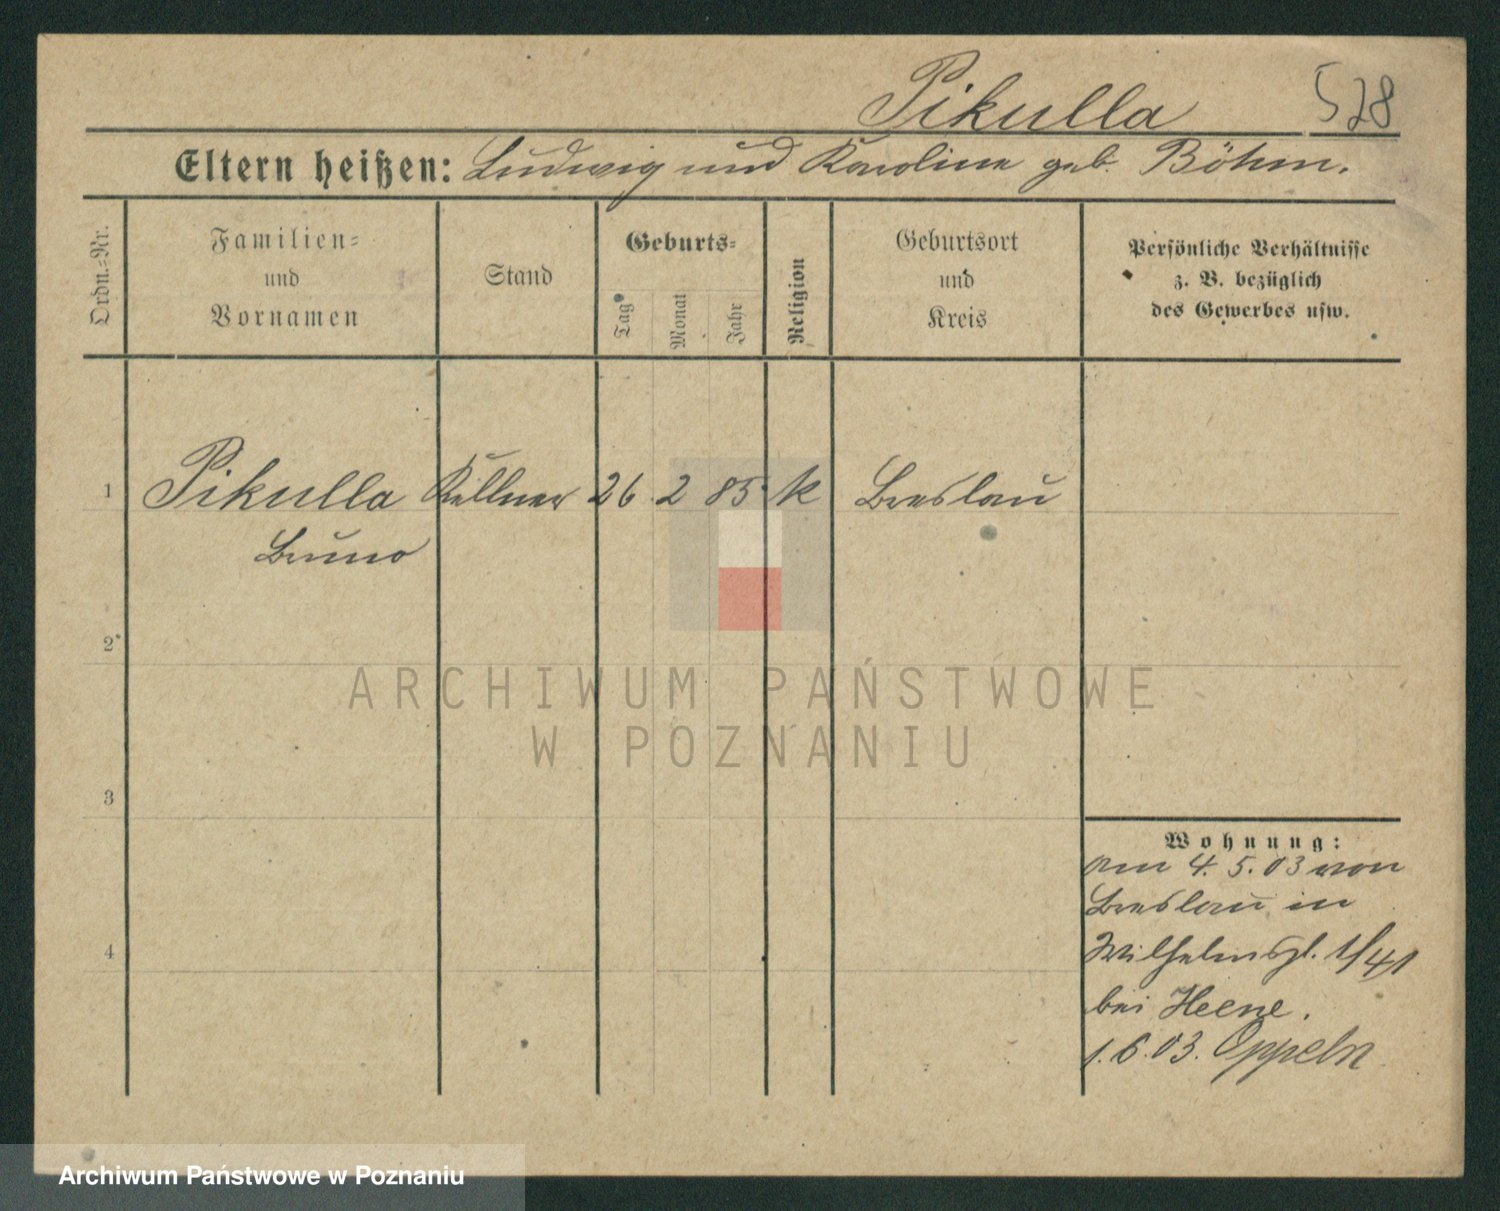 Pikulla 528
Eltern heißen: Ludwig und Karoline geb. Böhm.
Ordn.-Nr.
Familien-
und
Vornamen
Stand
Geburts-
Tag
Monat
Jahr
Religion
Geburtsort
und
Kreis
Persönliche Verhältnisse
z. B. bezüglich
des Gewerbes usw.
1 Pikulla Kellner 26 2 85 k Breslau
Bruno
2
3
4
Wohnung:
Am 4. 5. 03 von
Breslau in
Wilhelmspl. 1/41
bei Heene.
1. 6. 03. Oppeln
ARCHIWUM PAŃSTWOWE
W POZNANIU
Archiwum Państwowe w Poznaniu